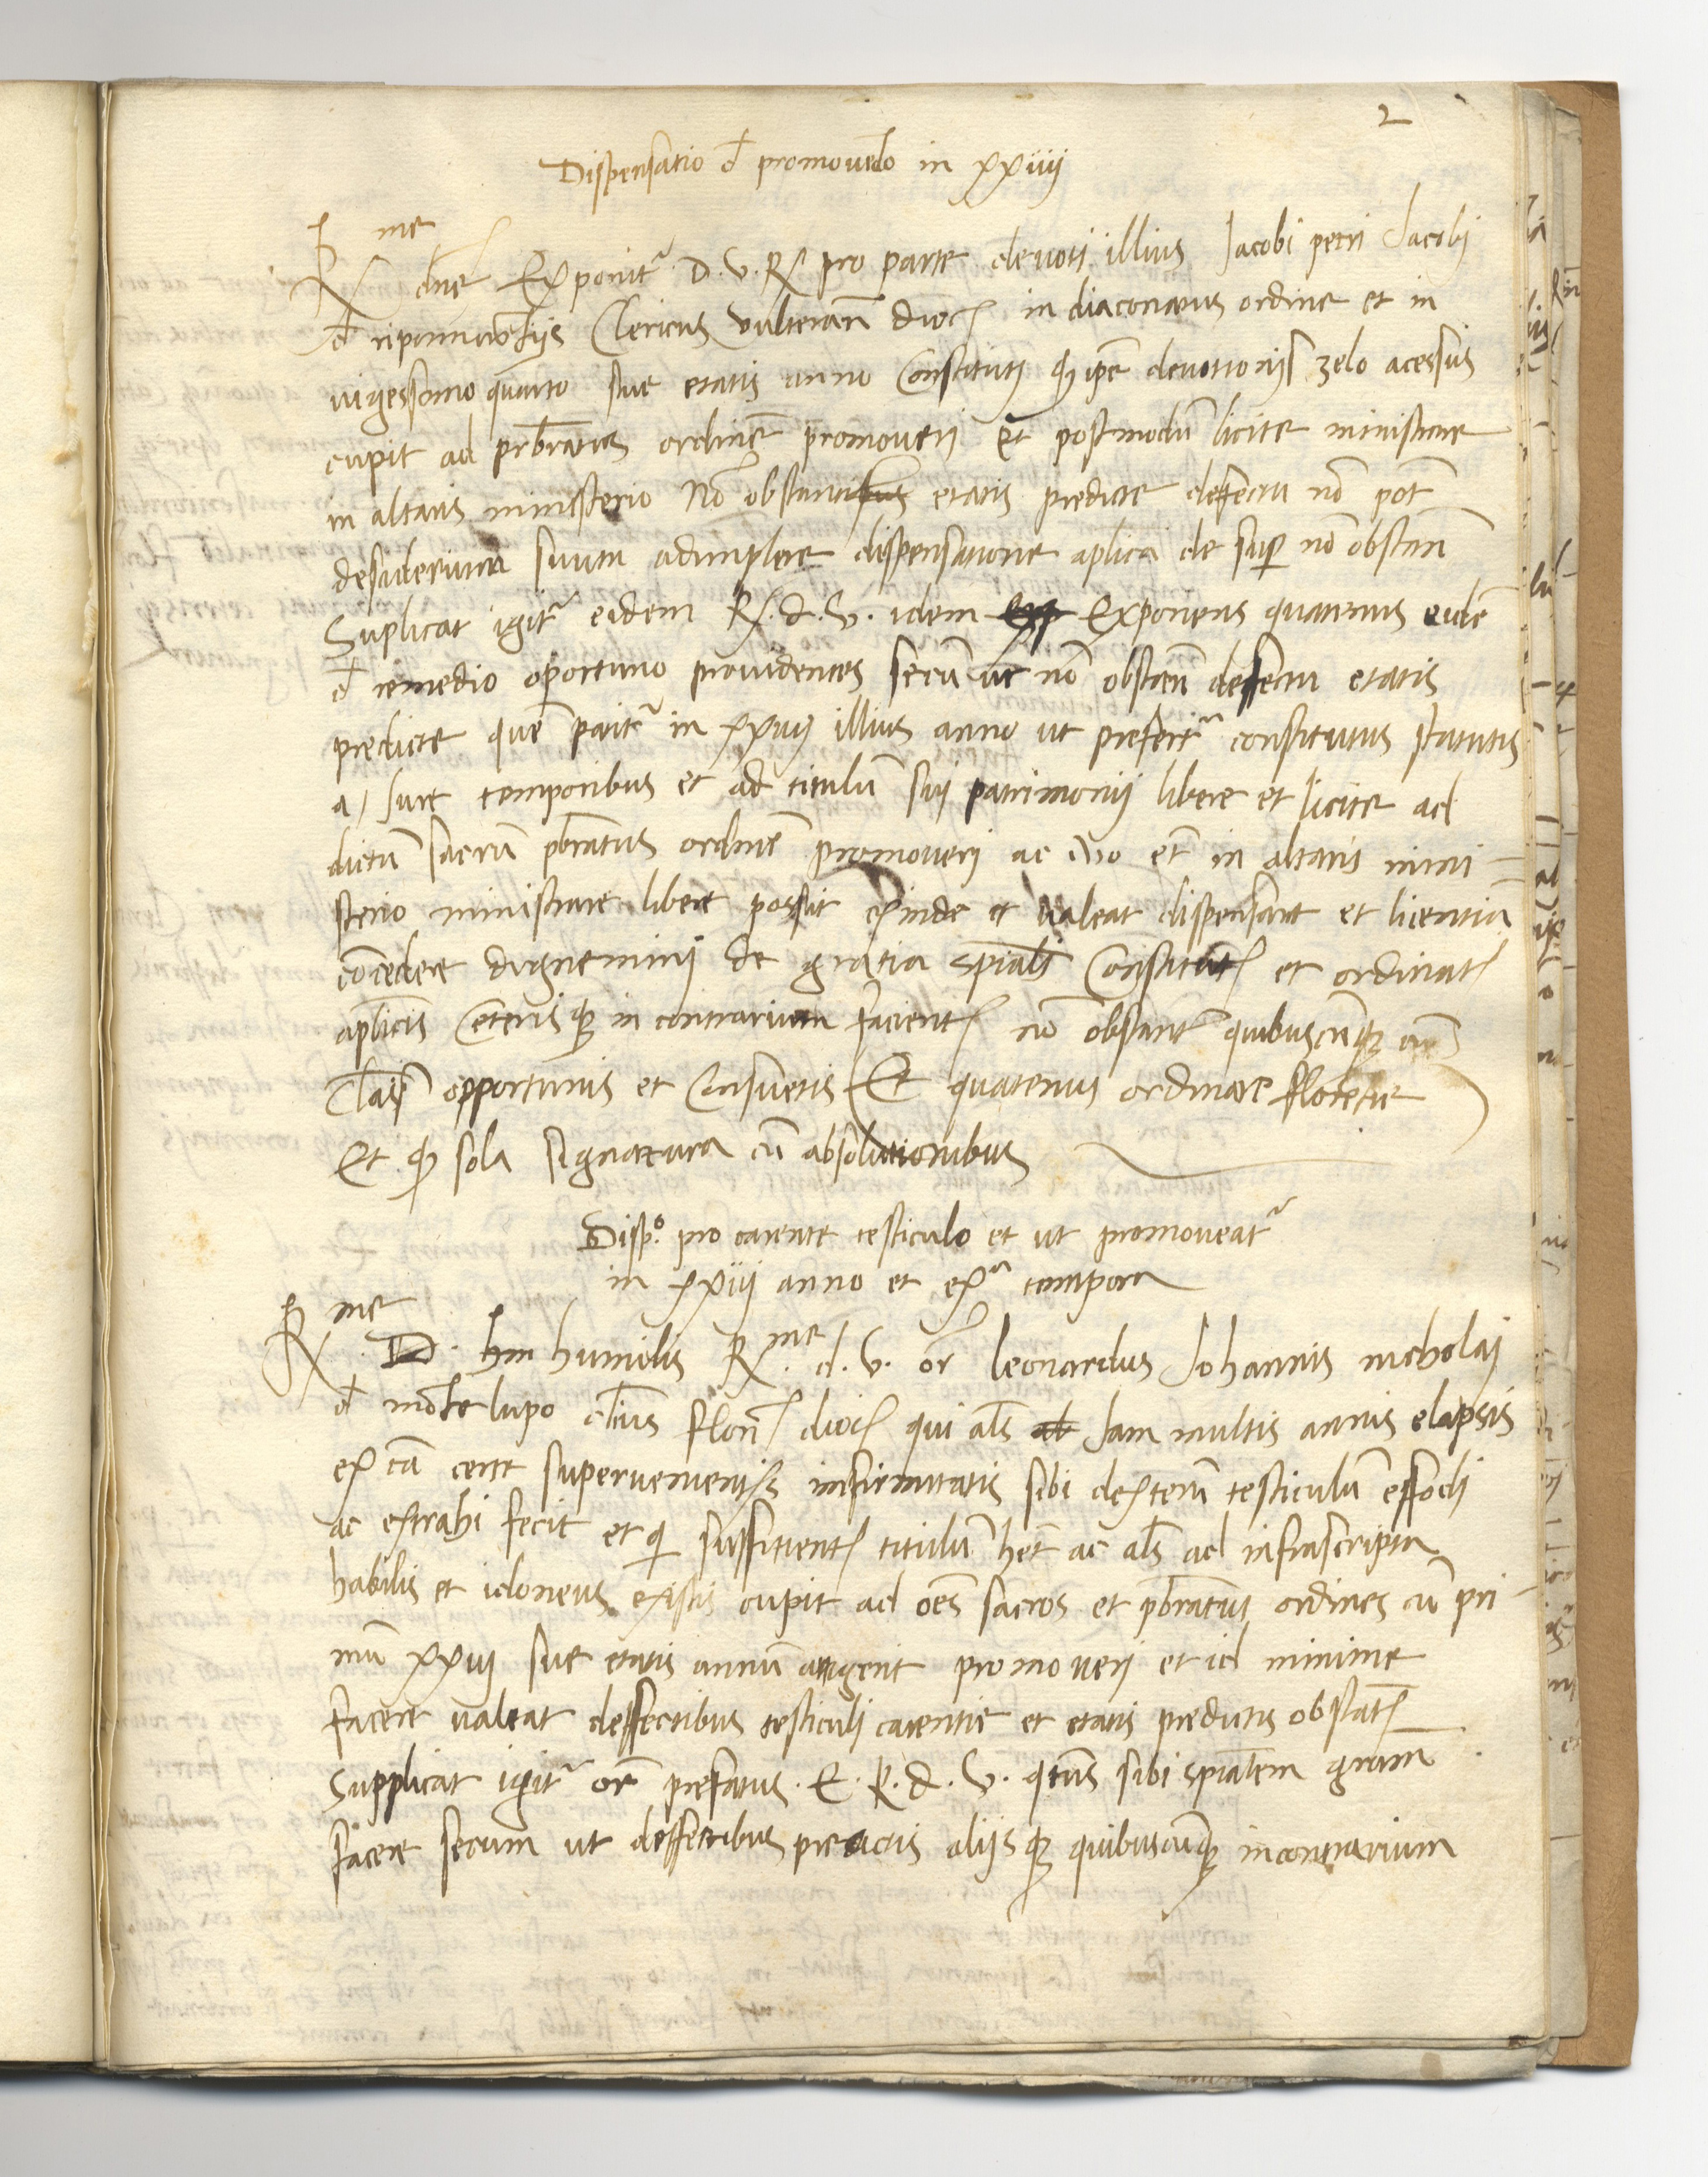 2
Dispensatio d promovēdo in xxiiij
R me dne Exponit D. V. R pro parte devoti illius Jacobi petri Jacobi
d ripomarāciis Clericus vulteran dioc in diaconatus ordine et in
vigessimo quarto sue etatis anno Constituti qd ipe devotionis zelo acessus
cupit ad prbratus ordinē promoveri et postmodū licite ministrare
in altaris ministerio Nō obstantibus etatis predicte defectu nō pot
desiderium suum adimplere dispensatione aplica de sup nō obstan
Suplicat igit eidem R. d. V. idem exp Exponens quatenus eidē
d remedio oportuno providentes secū ut nō obstan deffectu etatis
predicte quē patit in xxiiij illius anno ut prefert constitutus statutis
a Jure temporibus et ad titulū sui patrimonii libere et licite ad
dictū sacrū pbratus ordinē promoveri ac in eo et in altaris mini=
sterio ministrare libere possit exinde et valeat dispensare et licentiā
cōcedere dignemini de gratia spiali Constitut et ordinat
aplicis Ceterisque in contrarium facient nō obstant quibuscūque cū
Clais opportunis et Consuetis Et quatenus ordinare florētie
Et qd sola signatura cū absolutionibus
Dispo. pro carente testiculo et ut promoveat
in xxiij anno et exa tempora
R me D. hm humilis R.me d. V. or leonardus Johannis nicholaj
d mōte lupo clius flon dioc qui als ab Jam multis annis elapsis
ex cā certe supervenientis infirmitatis sibi dexterū testiculū effodi
ac extrahi fecit et qui suffitient titulū het ac als ad infrascripta
habilis et idoneus existis cupit ad oēs sacros et pbratus ordines cū pri-
mū xxiij sue etatis annū attigerit promoveri et id minime
facere valeat deffectibus testiculi carentie et etatis predictis obstat
supplicat igit or prefatus. E. R. d. V. qtus sibi spialem gram
facere secum ut deffectibus predictis aliisque quibuscūque incontrarium